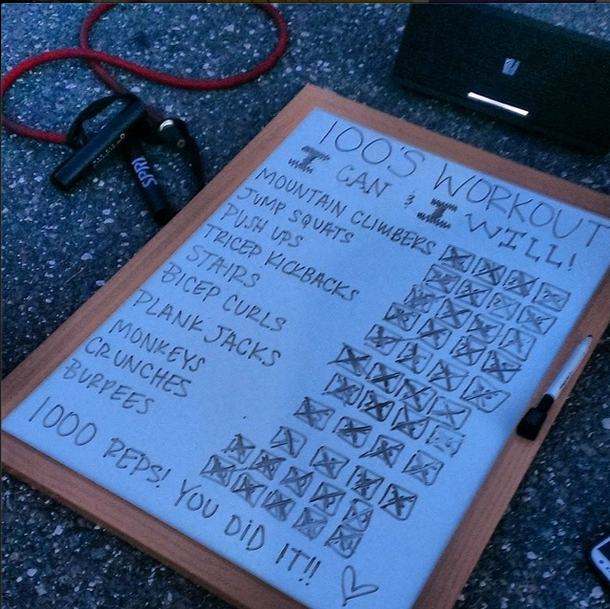 100'S WORKOUT
I CAN & I WILL!
MOUNTAIN CLIMBERS
JUMP SQUATS
PUSH UPS
TRICEP KICKBACKS
STAIRS
BICEP CURLS
PLANK JACKS
MONKEYS
CRUNCHES
BURPEES
1000 REPS! YOU DID IT!!
SPRI